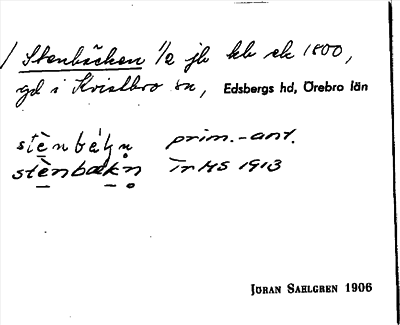 / Stenbäcken 1/2 jb kb sk 1800,
gd i Kvistbro sn, Edsbergs hd, Örebro län
prim.-ant.
stènbækn̥ TrHS 1913
JÖRAN SAHLGREN 1906